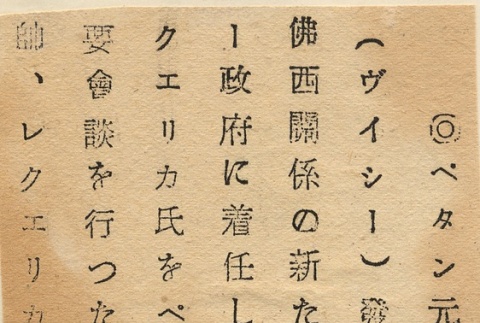 ◎ペタン元
(ヴイシー)發
佛西關係の新た
ー政府に着任し
クエリカ氏をペ
要會談を行つた
帥、レクエリカ